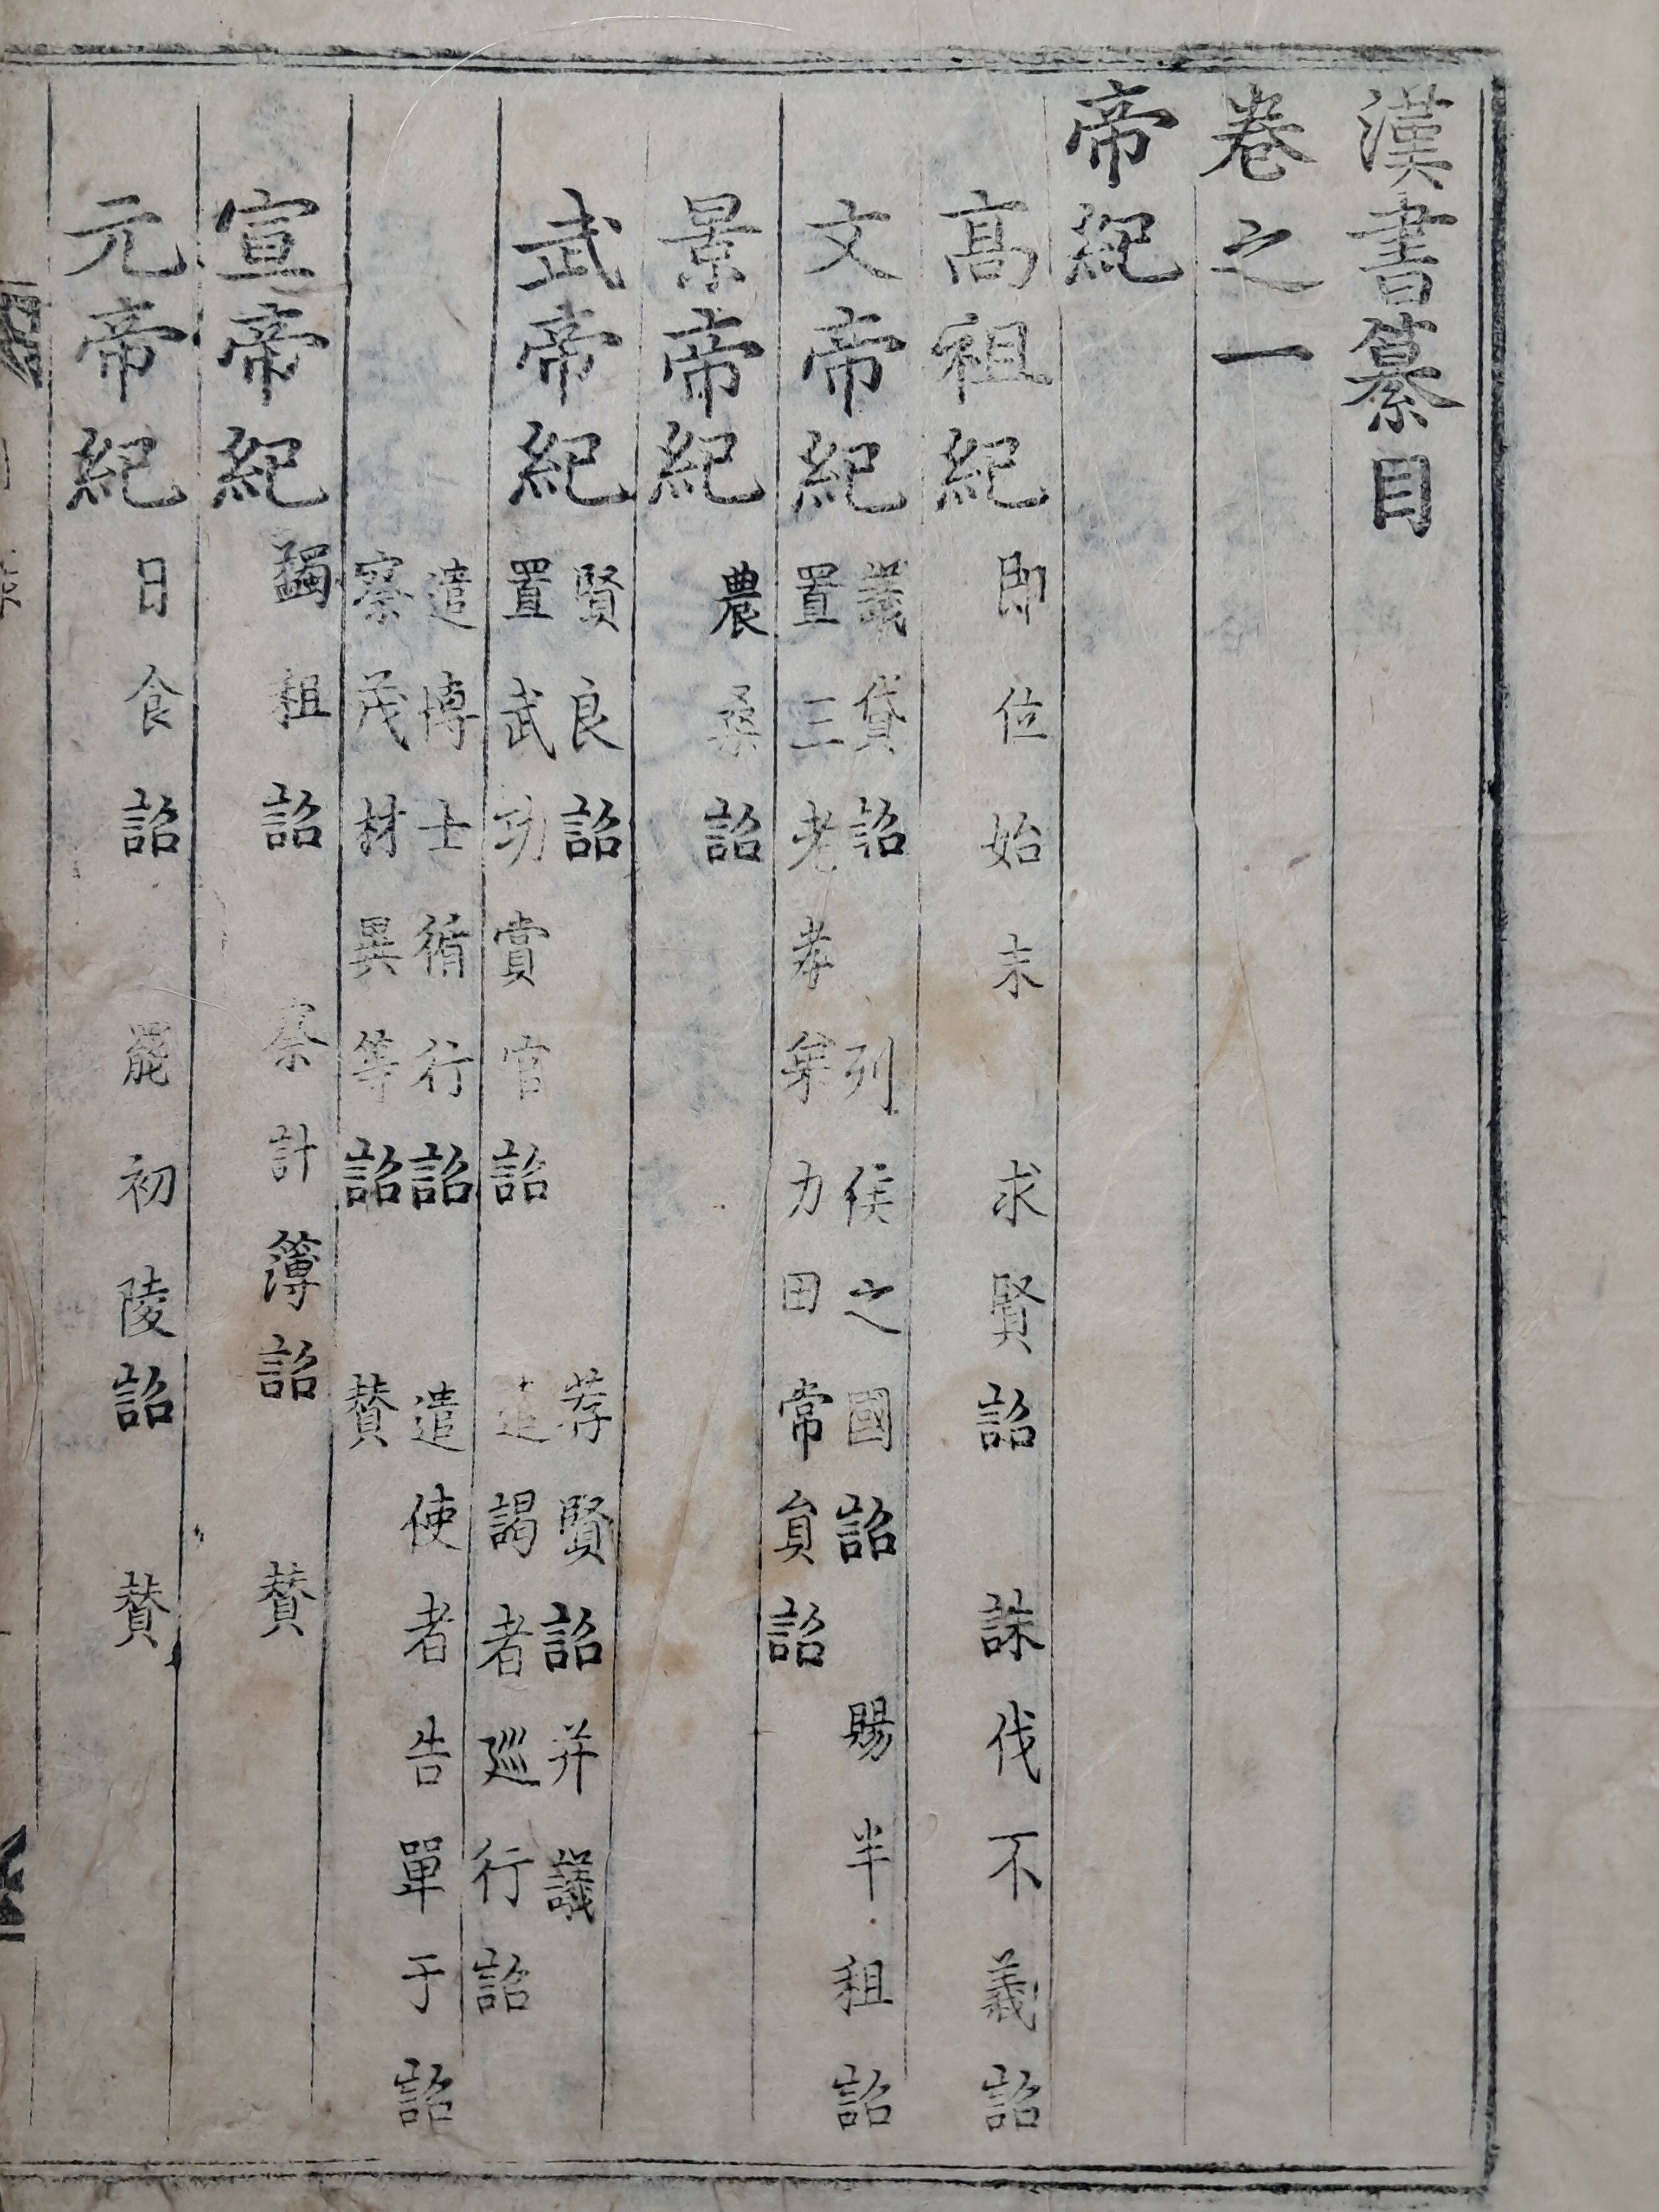 漢書纂目
卷之一
帝紀
高祖紀 即位始末 求賢詔 誅伐不義詔
文帝紀 議貸詔 列侯之國詔 賜半租詔
置三老孝弟力田常員詔
景帝紀 農桑詔
武帝紀 賢良詔 荐賢詔并議
置武功賞官詔 遣謁者巡行詔
遣博士循行詔 遣使者告單于詔
察茂材異等詔 贊
宣帝紀 蠲租詔 察計簿詔 贊
元帝紀 日食詔 罷初陵詔 贊